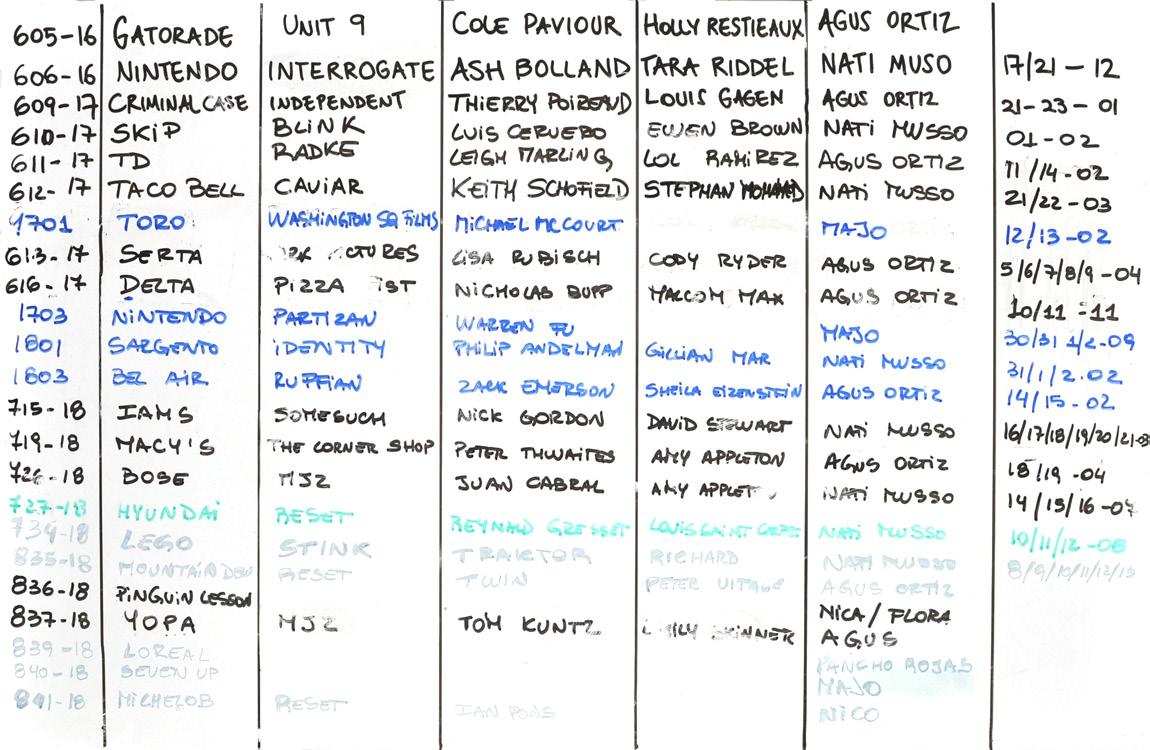 605-16 GATORADE UNIT 9 COLE PAVIOUR HOLLY RESTIEAUX AGUS ORTIZ
606-16 NINTENDO INTERROGATE ASH BOLLAND TARA RIDDEL NATI MUSO 17/21-12
609-17 CRIMINAL CASE INDEPENDENT THIERRY POIREAUD LOUIS GAGEN AGUS ORTIZ 21-23-01
610-17 SKIP BLINK LUIS CERVERO EWEN BROWN NATI MUSSO 01-02
611-17 TD RADKE LEIGH MARLING LOL RAMIREZ AGUS ORTIZ 11/14-02
612-17 TACO BELL CAVIAR KEITH SCHOFIELD STEPHAN NATI MUSSO 21/22-03
1701 TORO WASHINGTON SQ FILMS MICHAEL MCCOURT MAJO 12/13-02
613-17 SERTA LISA RUBISCH CODY RYDER AGUS ORTIZ 5/6/7/8/9-04
616-17 DELTA PIZZA NICHOLAS BUPP MALCOM MAX AGUS ORTIZ 10/11-11
1703 NINTENDO PARTIZAN WARREN FU MAJO 30/31 1/2-09
1801 SARGENTO IDENTITY PHILIP ANDELMAN GILLIAN MAR NATI MUSSO 31/1/2.02
1803 BEL AIR RUFFIAN ZACK EMERSON SHEILA EIZENSTEIN AGUS ORTIZ 14/15-02
715-18 IAMS SOMESUCH NICK GORDON DAVID STEWART NATI MUSSO 16/17/18/19/20/21-03
719-18 MACY'S THE CORNER SHOP PETER THWAITES AMY APPLETON AGUS ORTIZ 18/19-04
726-18 BOSE MJZ JUAN CABRAL AMY NATI MUSSO 14/15/16-07
727-18 HYUNDAI RESET REYNALD GRESSET LOUIS SAINT NATI MUSSO 10/11/12-08
734-18 LEGO STINK TRAKTOR RICHARD NATI MUSSO 8/9/10/11/12/13
835-18 MOUNTAIN DEW RESET TWIN PETER AGUS ORTIZ
836-18 PINGUIN LESSON NICA/FLORA
837-18 YOPA MJZ TOM KUNTZ SKINNER AGUS
839-18 LOREAL PANCHO ROJAS
840-18 SEVEN UP MAJO
841-18 MICHELOB RESET IAN PONS NICO